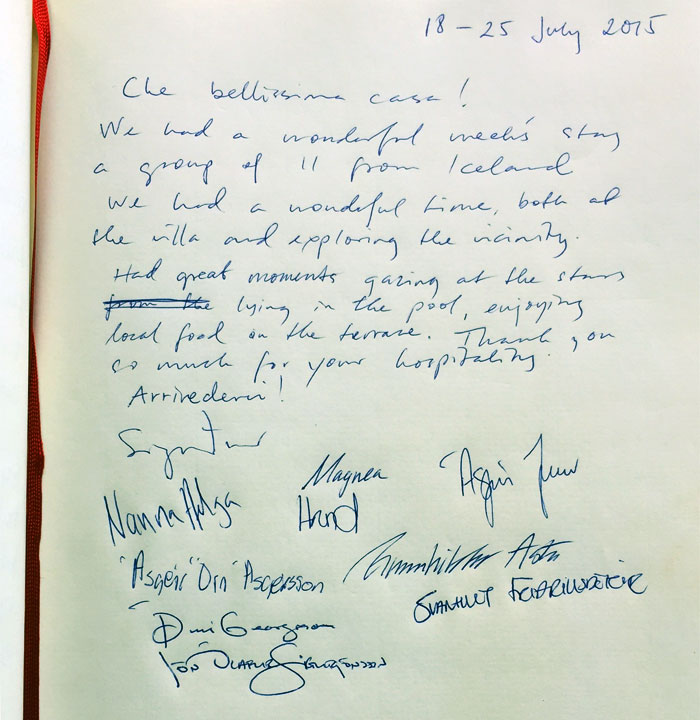 18 - 25 July 2015
Che bellissima casa!
We had a wonderful week's stay
a group of 11 from Iceland
We had a wondeful time, both at
the villa and exploring the vicinity.
Had great moments gazing at the stars
from the lying in the pool, enjoying
local food on the terrase. Thank you
so much for your hospitality.
Arrivederci!
Magnea
Nanna Helga
Ásgeir Örn Ásgeirsson
Ásta